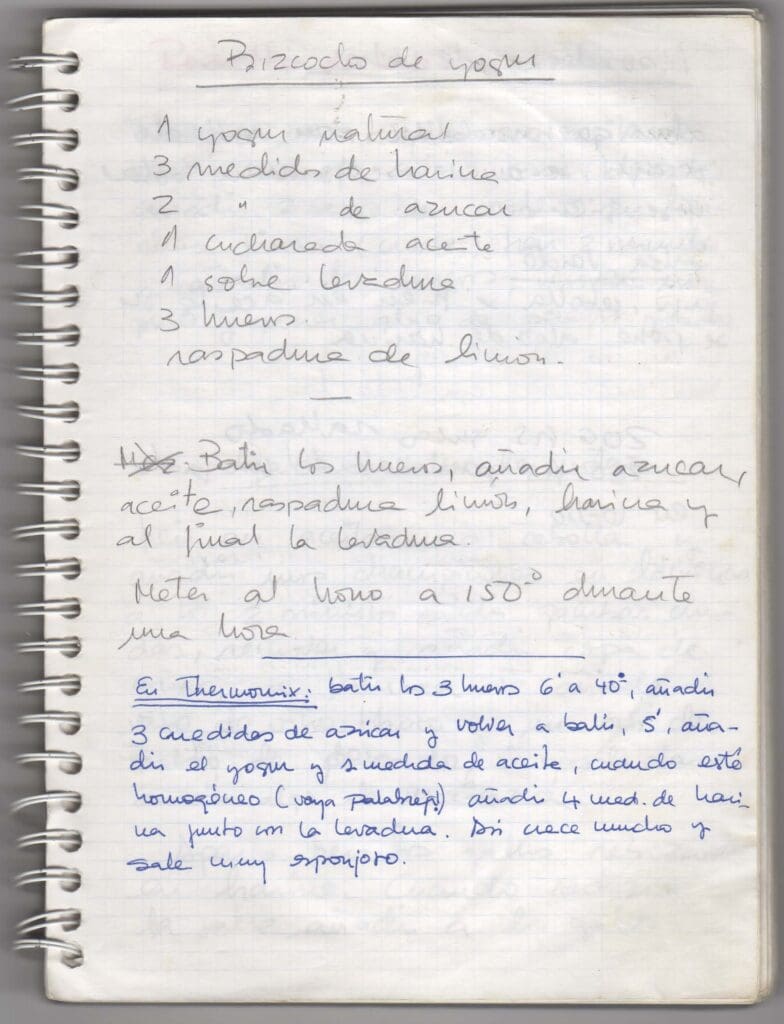 Bizcocho de yogur
1 yogur natural
3 medidas de harina
2 " de azucar
1 cucharada aceite
1 sobre levadura
3 huevos.
raspadura de limón.
—
Batir los huevos, añadir azucar,
aceite, raspadura limón, harina y
al final la levadura.
Meter al horno a 150º durante
una hora
En Thermomix: batir los 3 huevos 6' a 40º, añadir
3 medidas de azúcar y volver a batir, 5', aña-
dir el yogur y 1 medida de aceite, cuando esté
homogéneo (vaya palabreja!) añadir 4 med. de hari-
na junto con la levadura. Así crece mucho y
sale muy esponjoso.